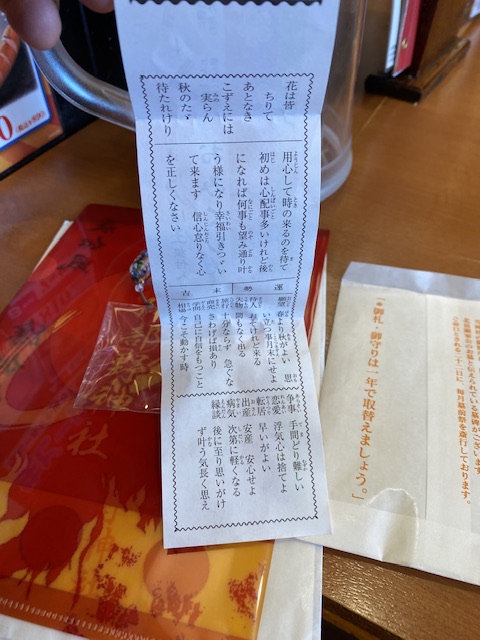 花は皆
ちりて
あとなき
こずえには
実らん
秋のたゞ
待たれけり
用心して時の来るのを待て
初めは心配事多いけれど後
になれば何事も望み通り叶
う様になり幸福引きつゞい
て来ます　信心怠りなく心
を正しくなさい
運勢　末吉
願望　春より秋がよい　思
い立つ事月末にせよ
待人　おそけれど来る
失物　間もなく出る
旅行　十分ならず　急ぐな
商売　さわげば損あり
学問　自己に自信をもつこと
相場　今こそ動かす時
争事　手間どり難しい
恋愛　浮気心は捨てよ
転居　早いがよい
出産　安産　安心せよ
病気　次第に軽くなる
縁談　後に至り思いがけ
ず叶う気長く思え
「御札・御守りは一年で取替えましょう。」
社